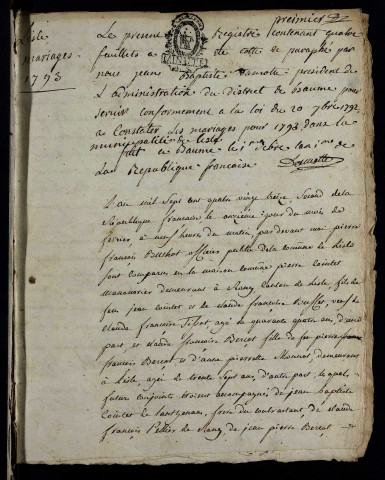 premier
L'isle
mariages
1793
Le present Registre contenant quatre
feuillets a cotte et paraphé par
nous jean Baptiste president de
L'administration du district de Baume pour
servir conformement a la loi du 20 7bre 1792
a Constater les mariages pour 1793 dans la
municipalité de Lisle
fait a Baume le 1er Xbre l'an 1er de
La Republique francaise
L'an mil sept cent quatre vingt treize second de la
République française le onzieme jour du mois de
fevrier, a neuf heures du matin pardevant moi pierre
françois officier public de la comune de Lisle
sont comparus en la maison comune pierre Cointet
manouvrier demeurant a Rang canton de Lisle, fils de
feu jean Cointet et de claude françoise, veuf de
claude françoise, agé de quarante quatre ans, d'une
part et claude françoise Bercot fille de feu pierre
françois Bercot et d'anne pierrette, demeurant
a Lisle agée de trente sept ans, d'autre part, lesquels
futurs conjoints accompagné de jean baptiste
Cointet frere du contractant, de claude
françois de Rang de jean pierre Bercot